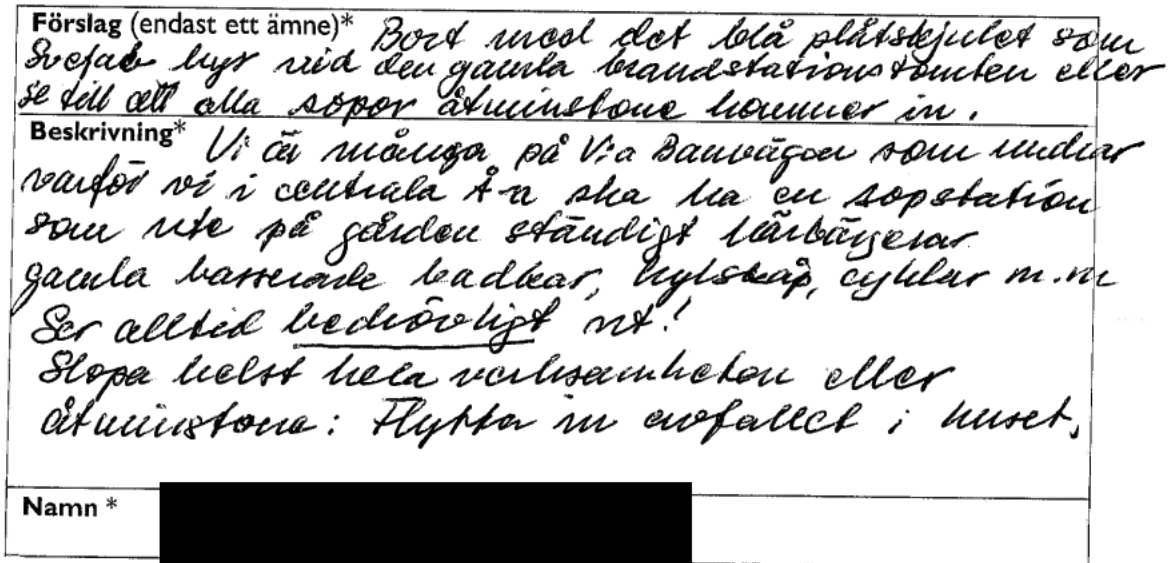 Förslag (endast ett ämne)* Bort med det blå plåtskjulet som
Svefab hyr vid den gamla brandstationstomten eller
se till att alla sopor åtminstone kommer in.
Beskrivning* Vi är många på V:a Banvägen som undrar
varför vi i centrala Å-a ska ha en sopstation
som ute på gården ständigt härbärgerar
gamla kasserade badkar, kylskåp, cyklar m.m
Ser alltid bedrövligt ut!
Slopa helst hela verksamheten eller
åtminstone: Flytta in avfallet i huset.
Namn *